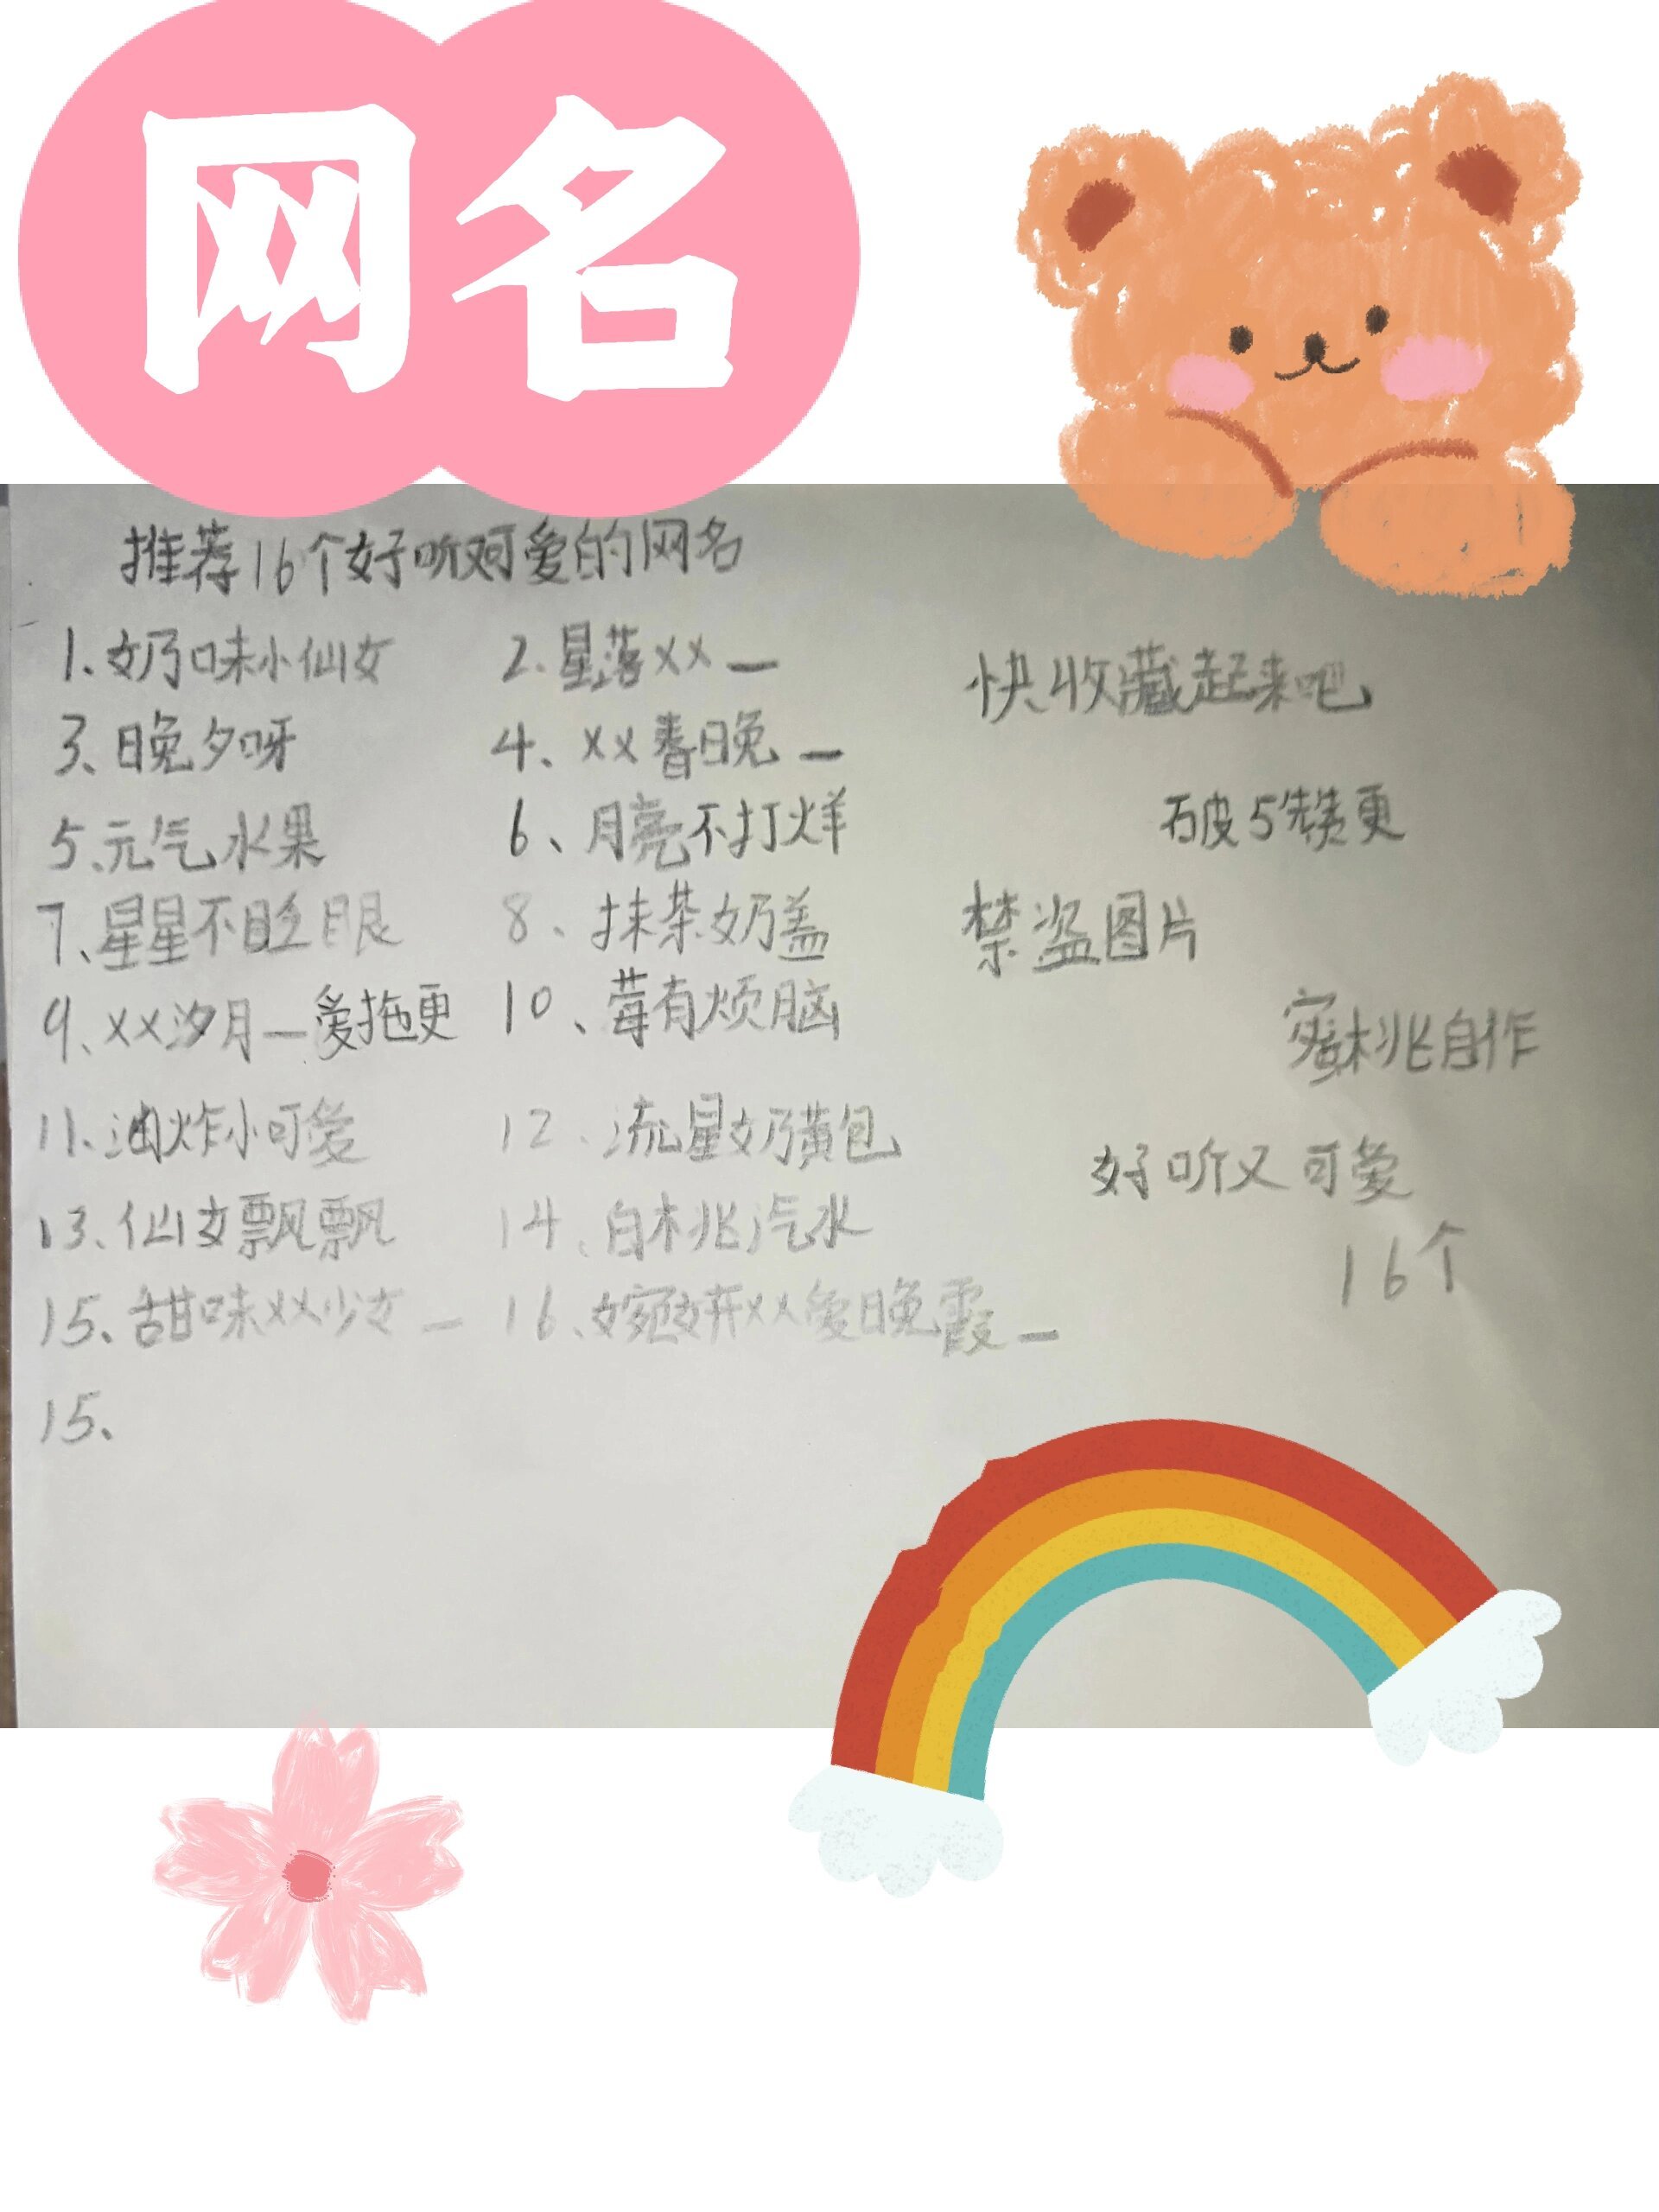 网名
推荐16个好听对可爱的网名
1、奶味小仙女
2、星落xx_
3、晚夕呀
4、xx春日晚_
5、元气水果
6、月亮不打烊
7、星星不眨眼
8、抹茶奶盖
9、xx汐月_爱拖更
10、莓有烦脑
11、油炸小可爱
12、流星奶黄包
13、仙女飘飘
14、白桃汽水
15、甜味xx少女_
16、婉妍xx爱晚霞_
15、
快收藏起来吧
破5赞更
禁盗图片
蜜桃自作
好听又可爱
16个